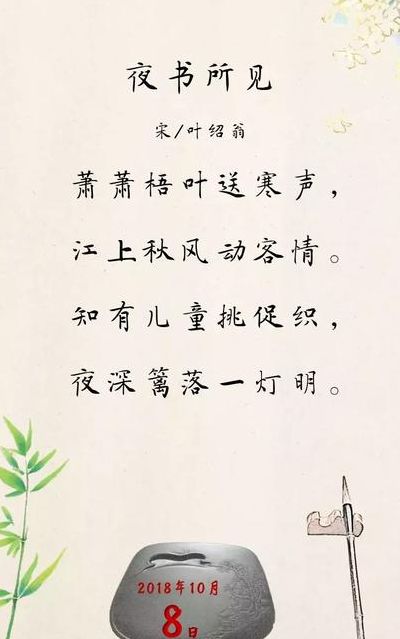 夜书所见
宋/叶绍翁
萧萧梧叶送寒声，
江上秋风动客情。
知有儿童挑促织，
夜深篱落一灯明。
2018年10月
8日